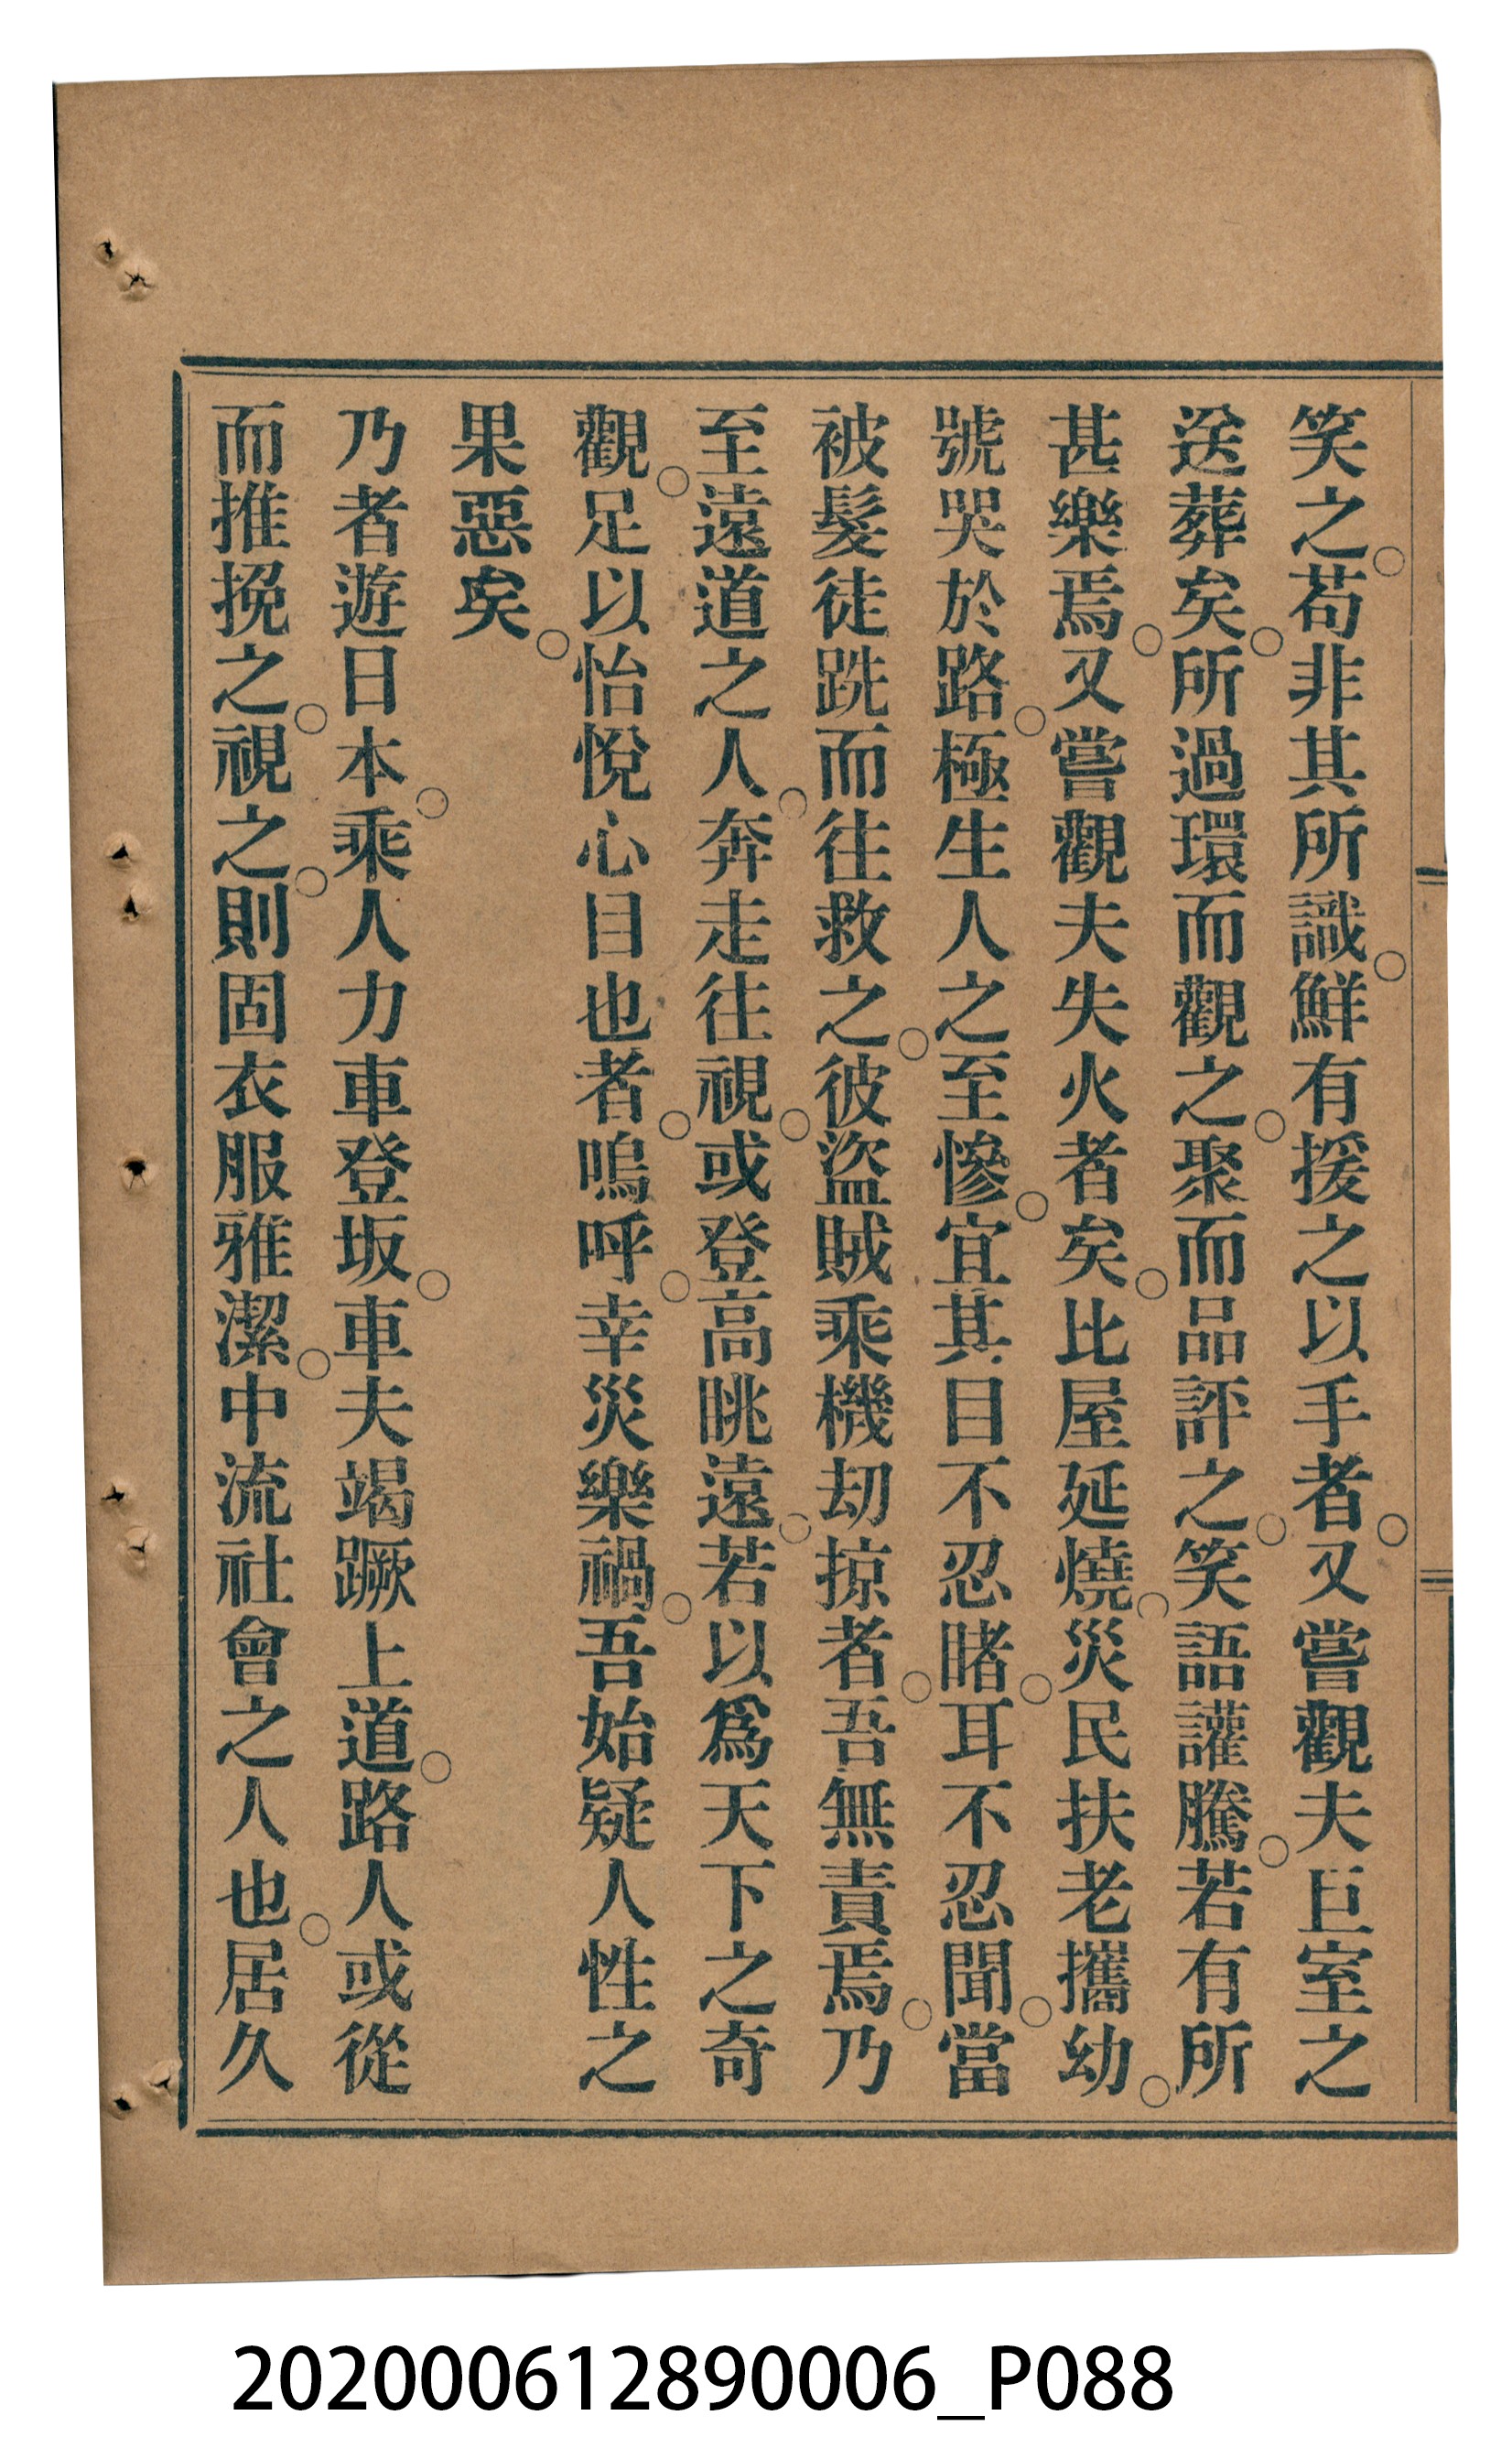 笑之。苟非其所識。鮮有援之以手者。又嘗觀夫巨室之
送葬矣。所過環而觀之。聚而品評之。笑語讙騰。若有所
甚樂焉。又嘗觀夫失火者矣。比屋延燒。災民扶老攜幼。
號哭於路。極生人之至慘。宜其目不忍睹。耳不忍聞。當
被髮徒跣而往救之。彼盜賊乘機刧掠者。吾無責焉。乃
至遠道之人。奔走往視。或登高眺遠。若以爲天下之奇
觀。足以怡悅心目也者。嗚呼。幸災樂禍。吾始疑人性之
果惡矣。
乃者遊日本。乘人力車登坂。車夫竭蹶上道。路人或從
而推挽之。視之。則固衣服雅潔。中流社會之人也。居久
202000612890006_P088